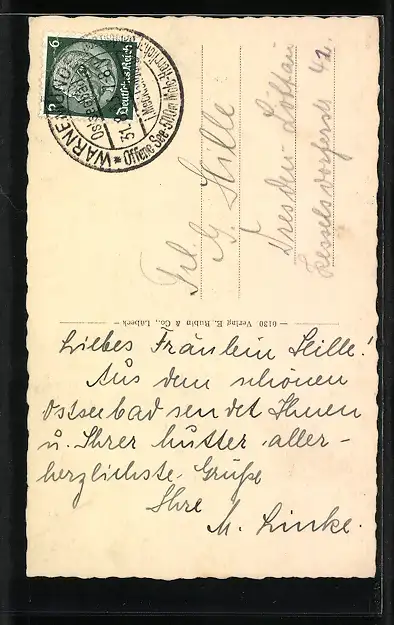 6
Deutsches Reich
WARNEMÜNDE
Ostseebad
31.
Offene See
Frl. G. Hille
Dresden-Löbtau
Kesselsdorferstr. 42.
0130 Verlag E. Rubin & Co., Lübeck
Liebes Fräulein Hille!
Aus dem schönen
Ostseebad sendet Ihnen
u. Ihrer Mutter aller-
herzlichste Grüße
Ihre
M. Linke.